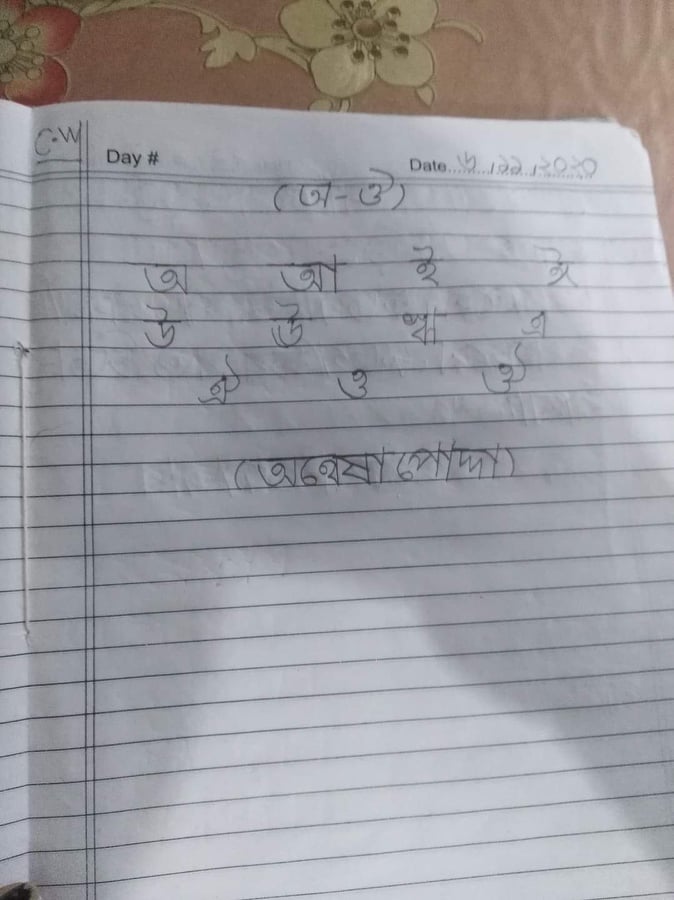 C.W
Day # Date ৬.১১.২০২০
(অ-ঔ)
অ আ ই ঈ
উ ঊ ঋ এ
ঐ ও ঔ
(অন্বেষা পোদ্দার)